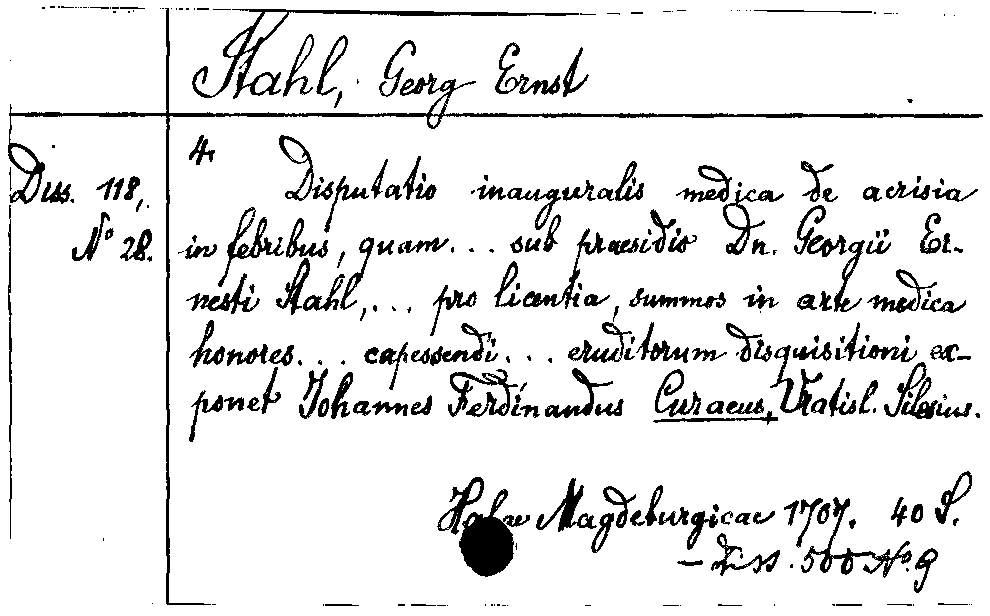 Stahl, Georg Ernst
4.
Diss. 118,
No 28.
Disputatio inauguralis medica de acrisia
in febribus, quam... sub praesidio Dn. Georgii Er-
nesti Stahl,... pro licentia, summos in arte medica
honores... capessendi... eruditorum disquisitioni ex-
ponet Johannes Ferdinandus Curaeus, Vratisl. Silesius.
Halae Magdeburgicae 1707. 40 S.
- Diss. 500 No. 9